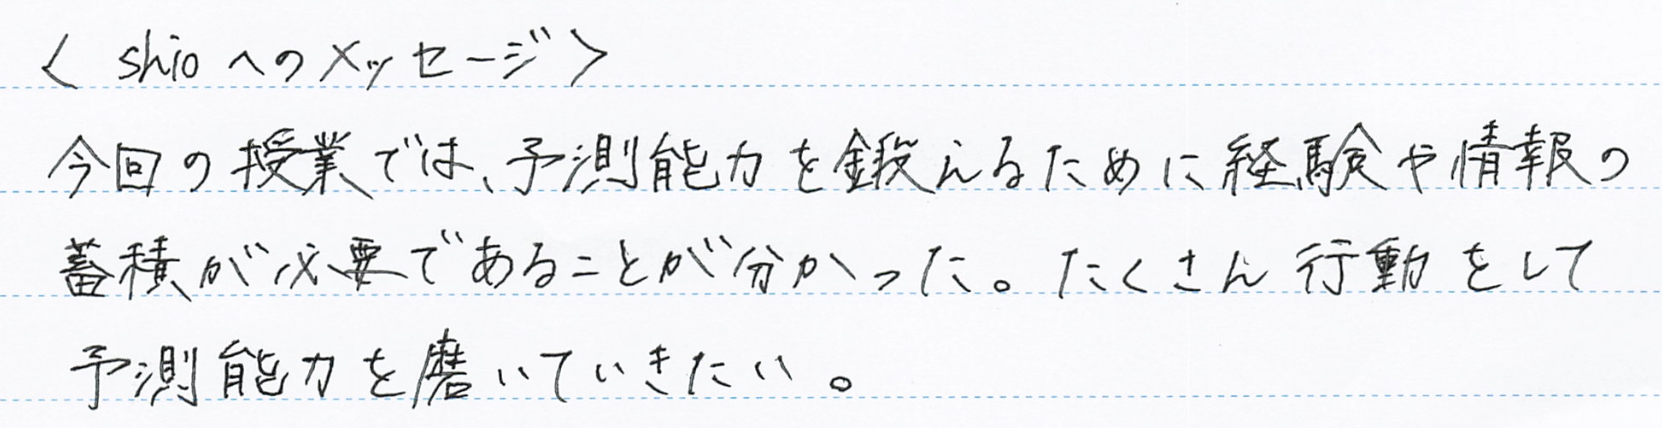 < shioへのメッセージ>
今回の授業では、予測能力を鍛えるために経験や情報の
蓄積が必要であることが分かった。たくさん行動をして
予測能力を磨いていきたい。